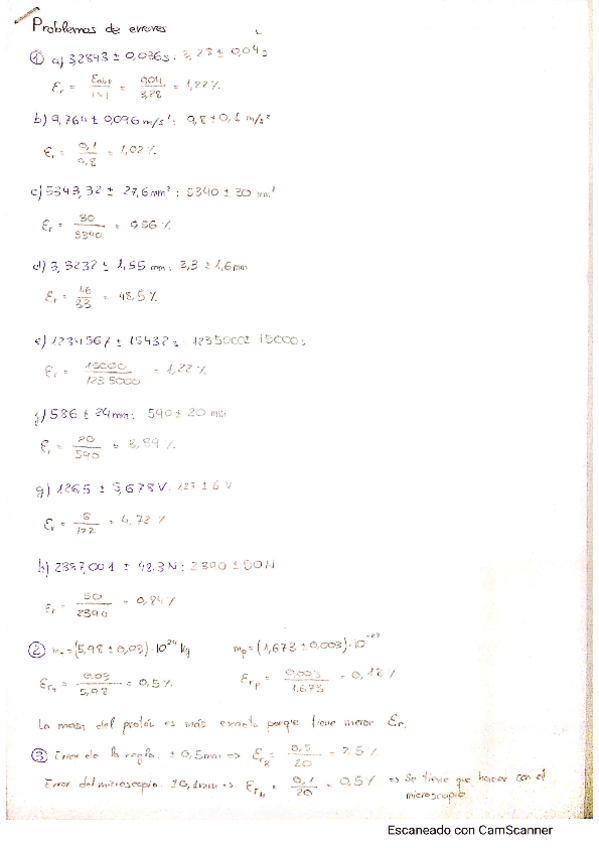 Problemas de errores
① a) 3,2843 ± 0,036 s: 3,28 ± 0,04 s
Er = Eabs / |x| = 0,04 / 3,28 = 1,22 %
b) 9,764 ± 0,096 m/s²: 9,8 ± 0,1 m/s²
Er = 0,1 / 9,8 = 1,02 %
c) 5343,32 ± 27,6 mm²: 5340 ± 30 mm²
Er = 30 / 5340 = 0,56 %
d) 3,3232 ± 1,55 mm: 3,3 ± 1,6 mm
Er = 1,6 / 3,3 = 48,5 %
e) 1234567 ± 15432 s: 1235000 ± 15000 s
Er = 15000 / 1235000 = 1,22 %
f) 586 ± 24 mm: 590 ± 20 mm
Er = 20 / 590 = 3,39 %
g) 126,5 ± 5,678 V: 127 ± 6 V
Er = 6 / 127 = 4,72 %
h) 2387,001 ± 48,3 N: 2390 ± 50 N
Er = 50 / 2390 = 0,84 %
② = (5,98 ± 0,03) · 10²⁴ kg mp = (1,673 ± 0,003) · 10⁻²⁷
= 0,03 / 5,98 = 0,5 % Erp = 0,003 / 1,673 = 0,18 %
La masa del protón es más exacta porque tiene menor Er.
③ Error de la regla: ± 0,5mm => ErR = 0,5 / 20 = 2,5 %
Error del microscopio: ± 0,1mm => ErM = 0,1 / 20 = 0,5 % => Se tiene que hacer con el
microscopio
Escaneado con CamScanner